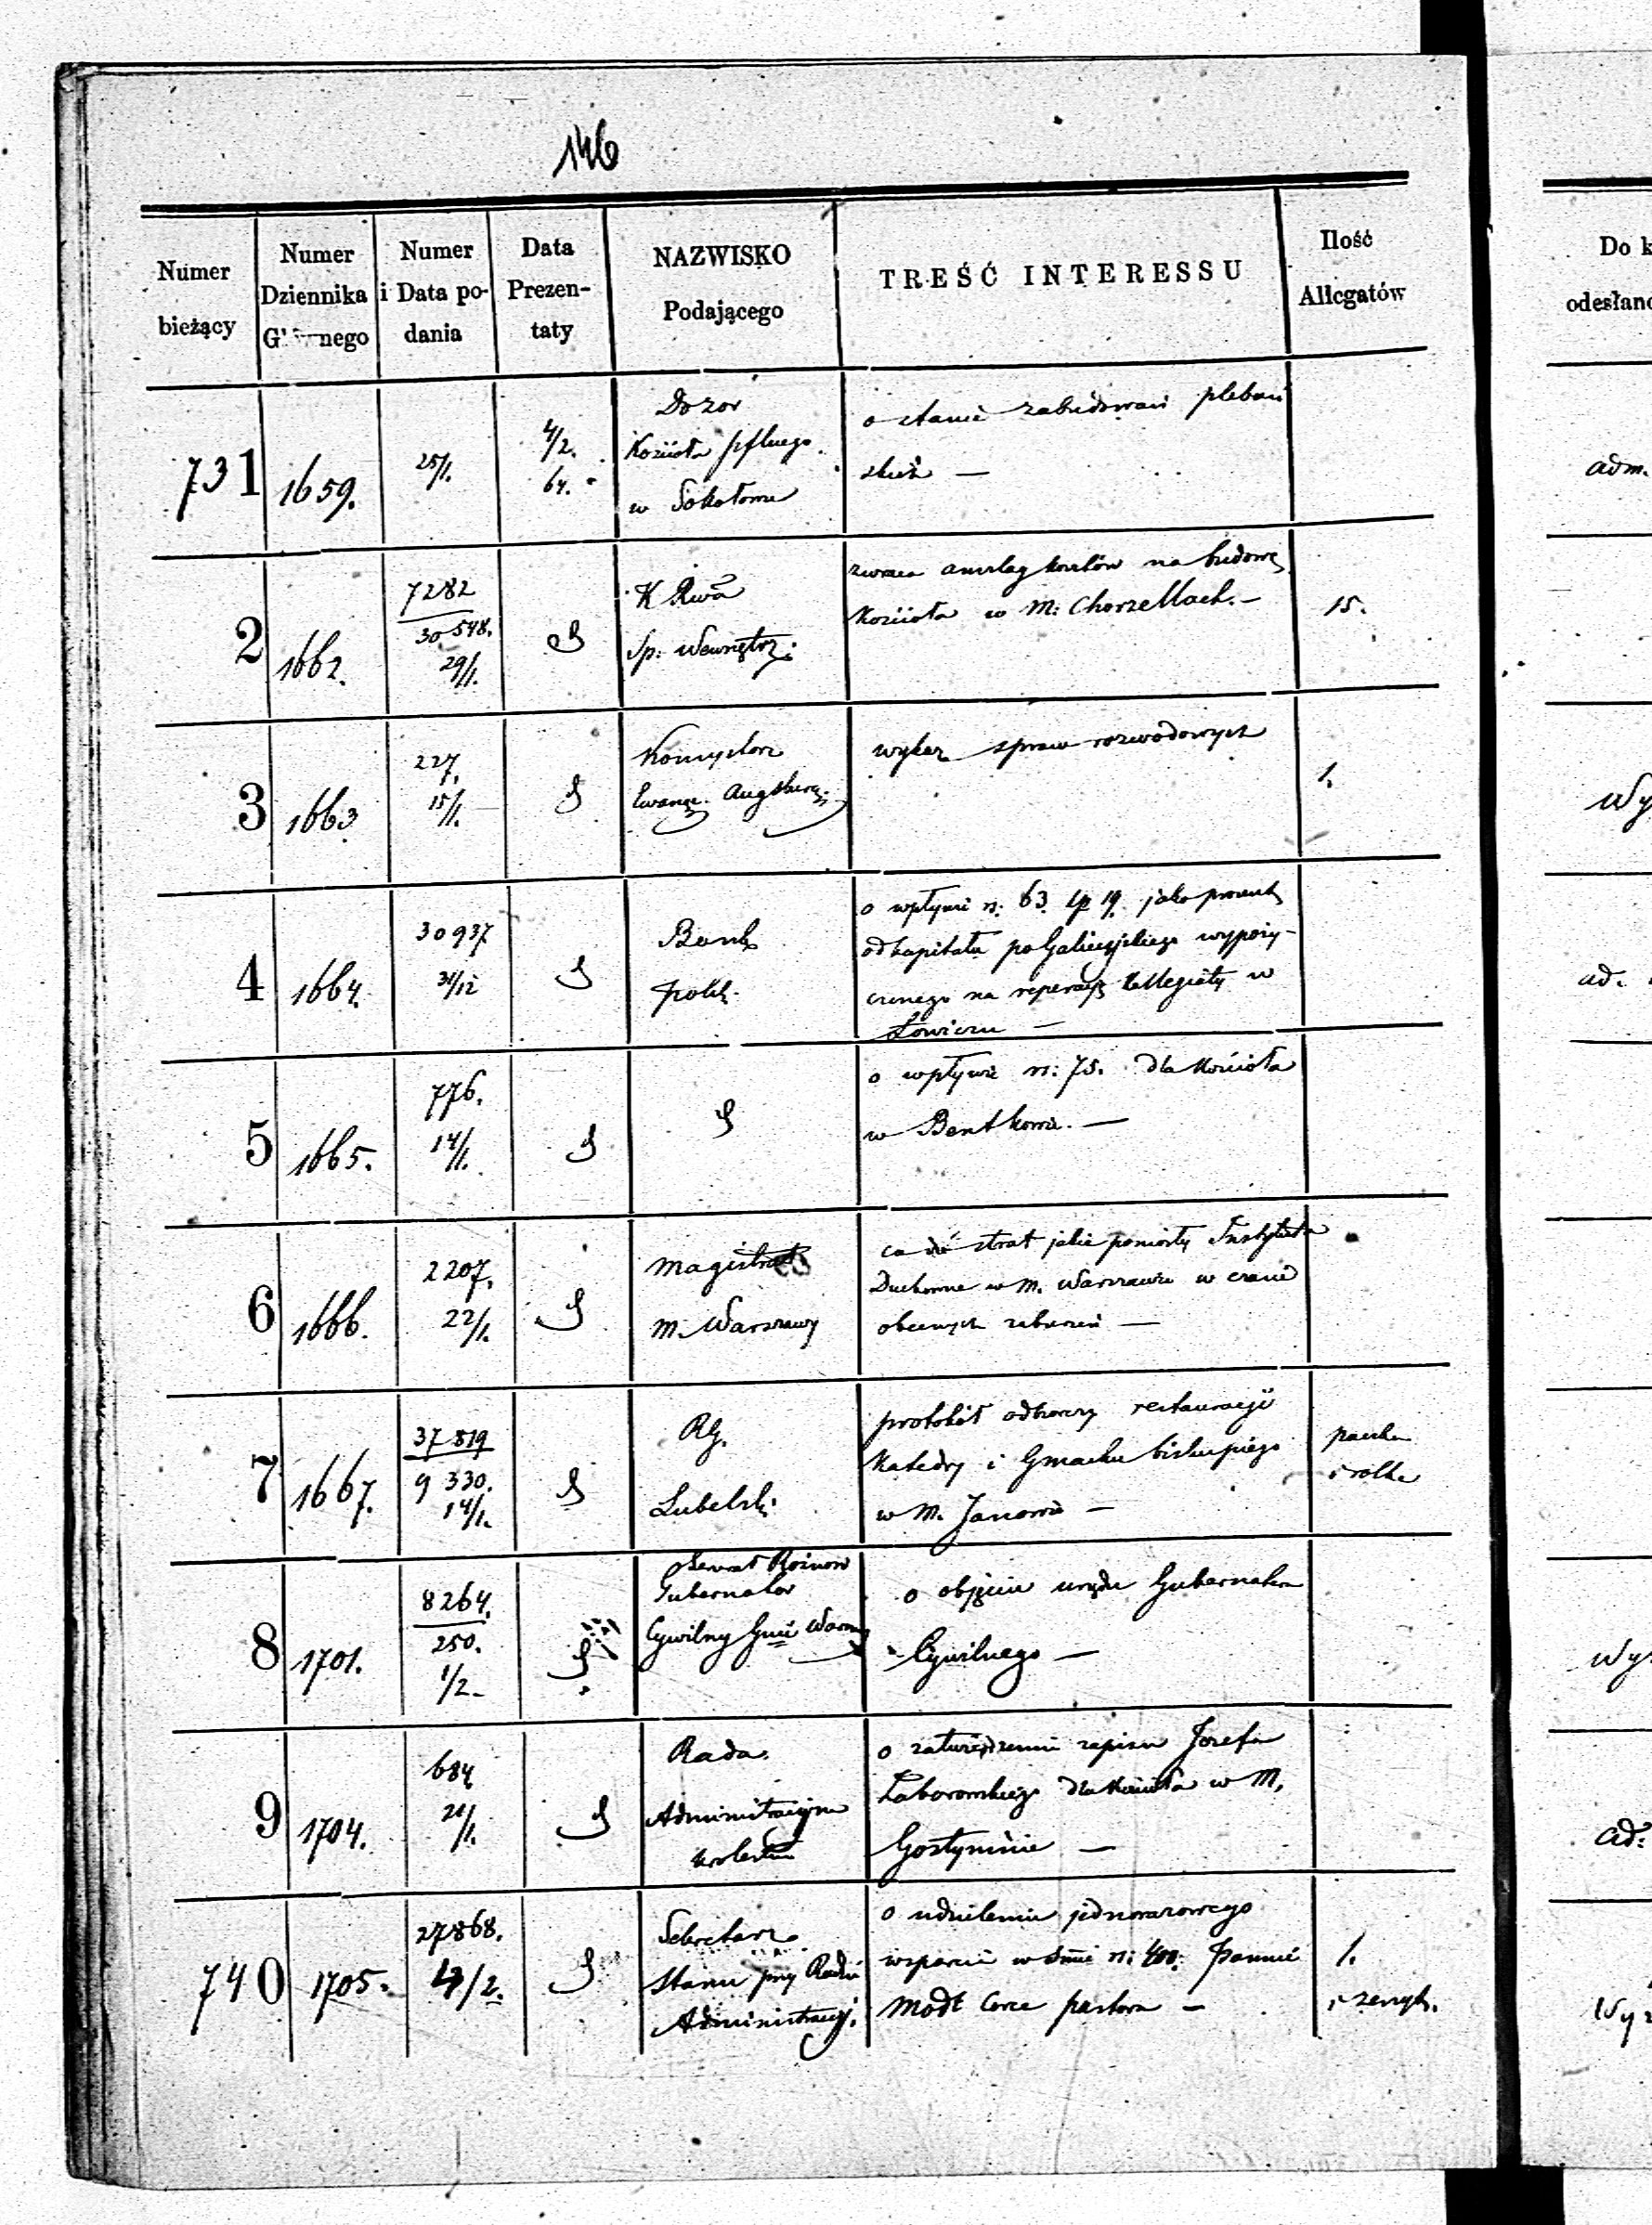 146
Numer bieżący
Numer Dziennika G nego
Numer i Data podania
Data Prezentaty
NAZWISKO Podającego
TREŚĆ INTERESSU
Ilość Allegatów
Do k
odesłano
731 1659. 25/1. 4/2. 64. Dozor
Kościoła pflnego
w Sokołowie
o stanie zabudowań plebań
skich —
adm.
2 1662. 7282
30548.
29/1.
K Rwa
Sp: Wewnętrz:
zwraca anszlag kosztów na budowę
Kościoła w M: Chorzellach. —
15.
3 1663 227.
15/1.
Konsystorz
Ewang. Augsburg.
wykaz spraw rozwodowych
1.
Wy
4 1664. 30937
31/12
Bank
Polsk.
o wpływie rs. 63 kp 19. jako procent
od kapitału po Galicyjskiego wypoży-
czonego na reperację Kollegiaty w
Łowiczu —
ad.
5 1665. 776.
14/1.
o wpływie rs: 75. dla Kościoła
w Bentkowie. —
6 1666. 2207.
22/1.
Magistrat
M. Warszawy
co do strat jakie poniosły Instytuta
Duchowne w M. Warszawie w czasie
obecnych zaburzeń —
7 1667. 37819
9330.
14/1.
RG.
Lubelski
protokół odbiorczy restauracyi
Katedry i Gmachu biskupiego
w M. Janowie —
paczka
i rolka
8 1701. 8264.
250.
1/2.
Jenerał Rożnow
Gubernator
Cywilny Gnii Warsz
o objęciu urzędu Gubernatora
Cywilnego —
Wy
9 1704. 684
21/1.
Rada
Administracyjna
Królestwa
o zatwierdzeniu zapisu Jozefa
Zaborowskiego dla Kościoła w M.
Gostyninie —
ad:
740 1705. 27868.
4/2.
Sekretarz
Stanu przy Radzie
Administracyj.
o udzielenie jednorazowego
wsparcia w śmie rs: 400: Pannie
Modl Corce pastora —
1.
i zeszyt.
Wy